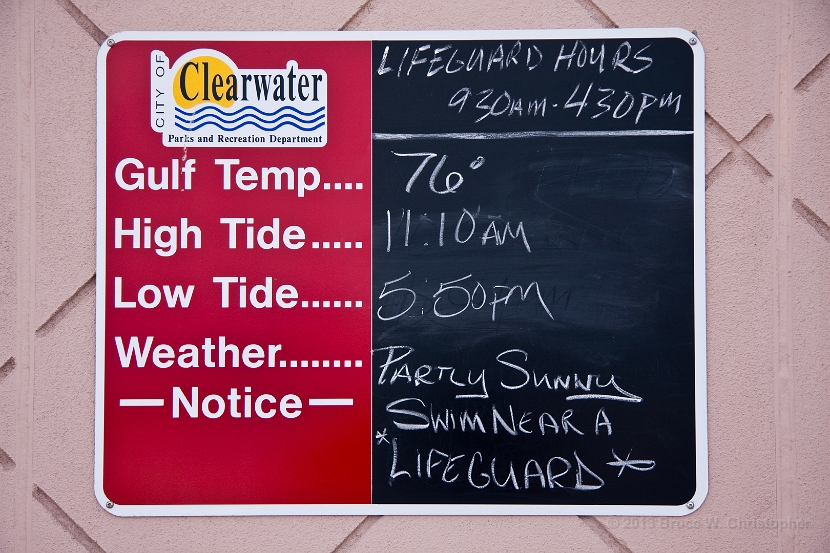 CITY OF
Clearwater
Parks and Recreation Department
LIFEGUARD HOURS
930AM-430PM
Gulf Temp.... 76°
High Tide..... 11:10AM
Low Tide...... 5:50PM
Weather........ PARTLY SUNNY
—Notice— SWIM NEAR A
*LIFEGUARD*
© 2013 Bruce W. Christopher